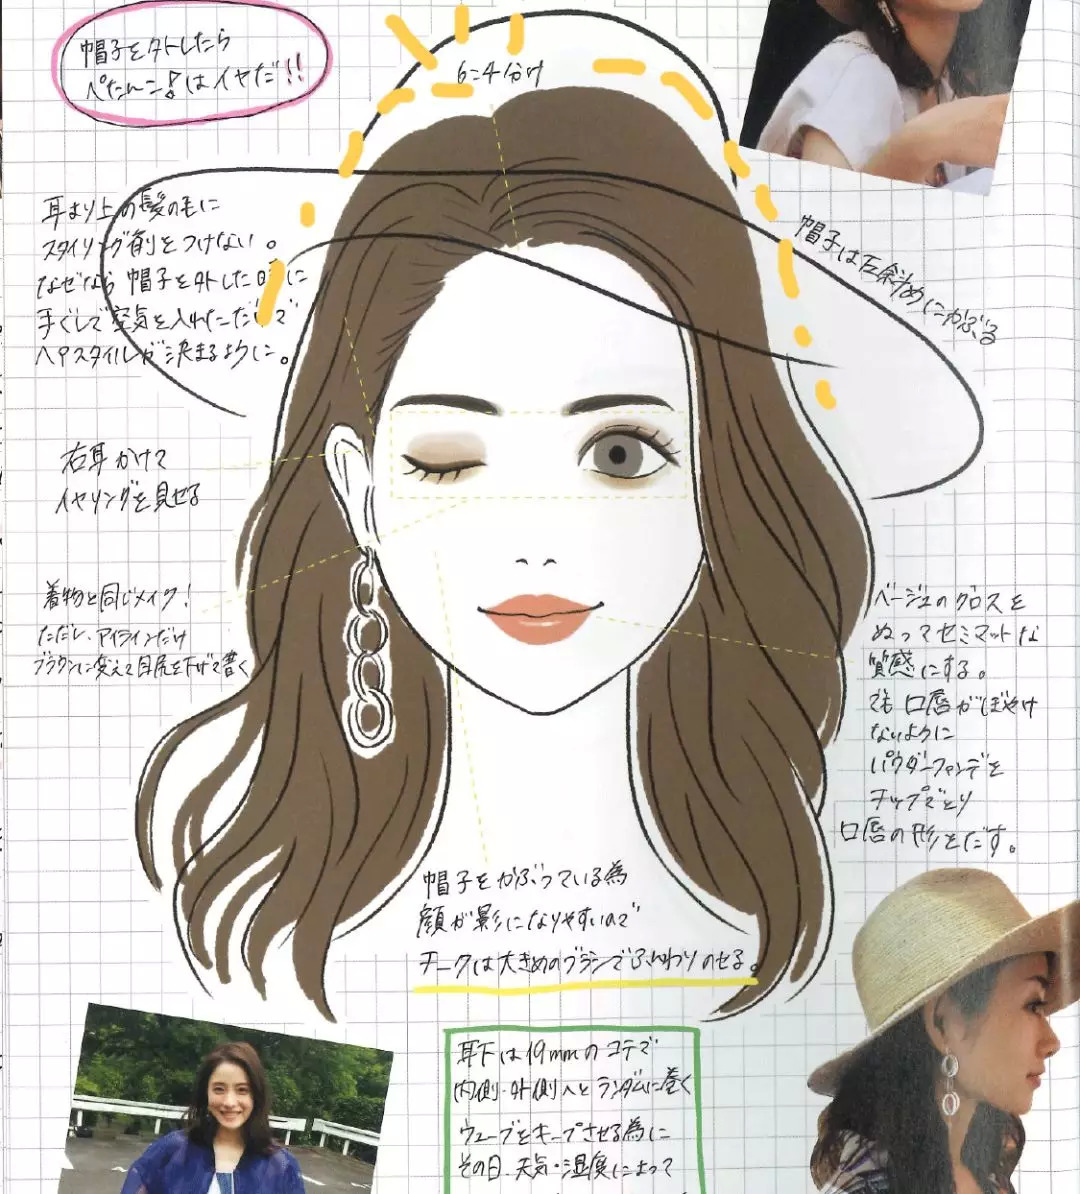 帽子を外したら
ぺたんこ!はイヤだ!!
6:4分け
耳より上の髪の毛に
スタイリング剤をつけない。
なぜなら帽子を外した時に
手ぐしで空気を入れただけで
ヘアスタイルが決まるように。
帽子は左斜めにかぶる
右耳かけて
イヤリングを見せる
着物と同じメイク!
ただし、アイラインだけ
ブラウンに変えて目尻を下げて書く
ベージュのグロスを
ぬってセミマットな
質感にする。
でも口唇がぼやけ
ないように
パウダーファンデを
チップでとり
口唇の形をだす。
帽子をかぶっている為
顔が影になりやすいので
チークは大きめのブラシでふんわりのせる。
耳下は19mmのコテで
内側・外側へとランダムに巻く
ウェーブをキープさせる為に
その日、天気・湿度によって